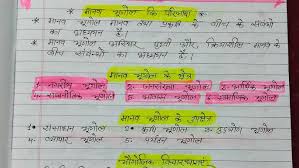 * मानव भूगोल कि परिभाषा *
* मानव भूगोल मानव तथा प्रकृति के बीच के संबंधों
का अध्ययन है।
* मानव भूगोल अस्थिर पृथ्वी और क्रियाशील मानव के
बीच संबंधों का अध्ययन है।
मानव भूगोल के क्षेत्र
1- नगरीय भूगोल 2- जनसंख्या भूगोल 3- आर्थिक भूगोल
4- राजनीतिक भूगोल 5- आवास भूगोल 6- सामाजिक भूगोल
मानव भूगोल के उपक्षेत्र
1- संसाधन भूगोल 2- कृषि भूगोल 3- उद्योग भूगोल
4- व्यापार भूगोल 5- पर्यटन भूगोल
भौगोलिक विचारधाराएं